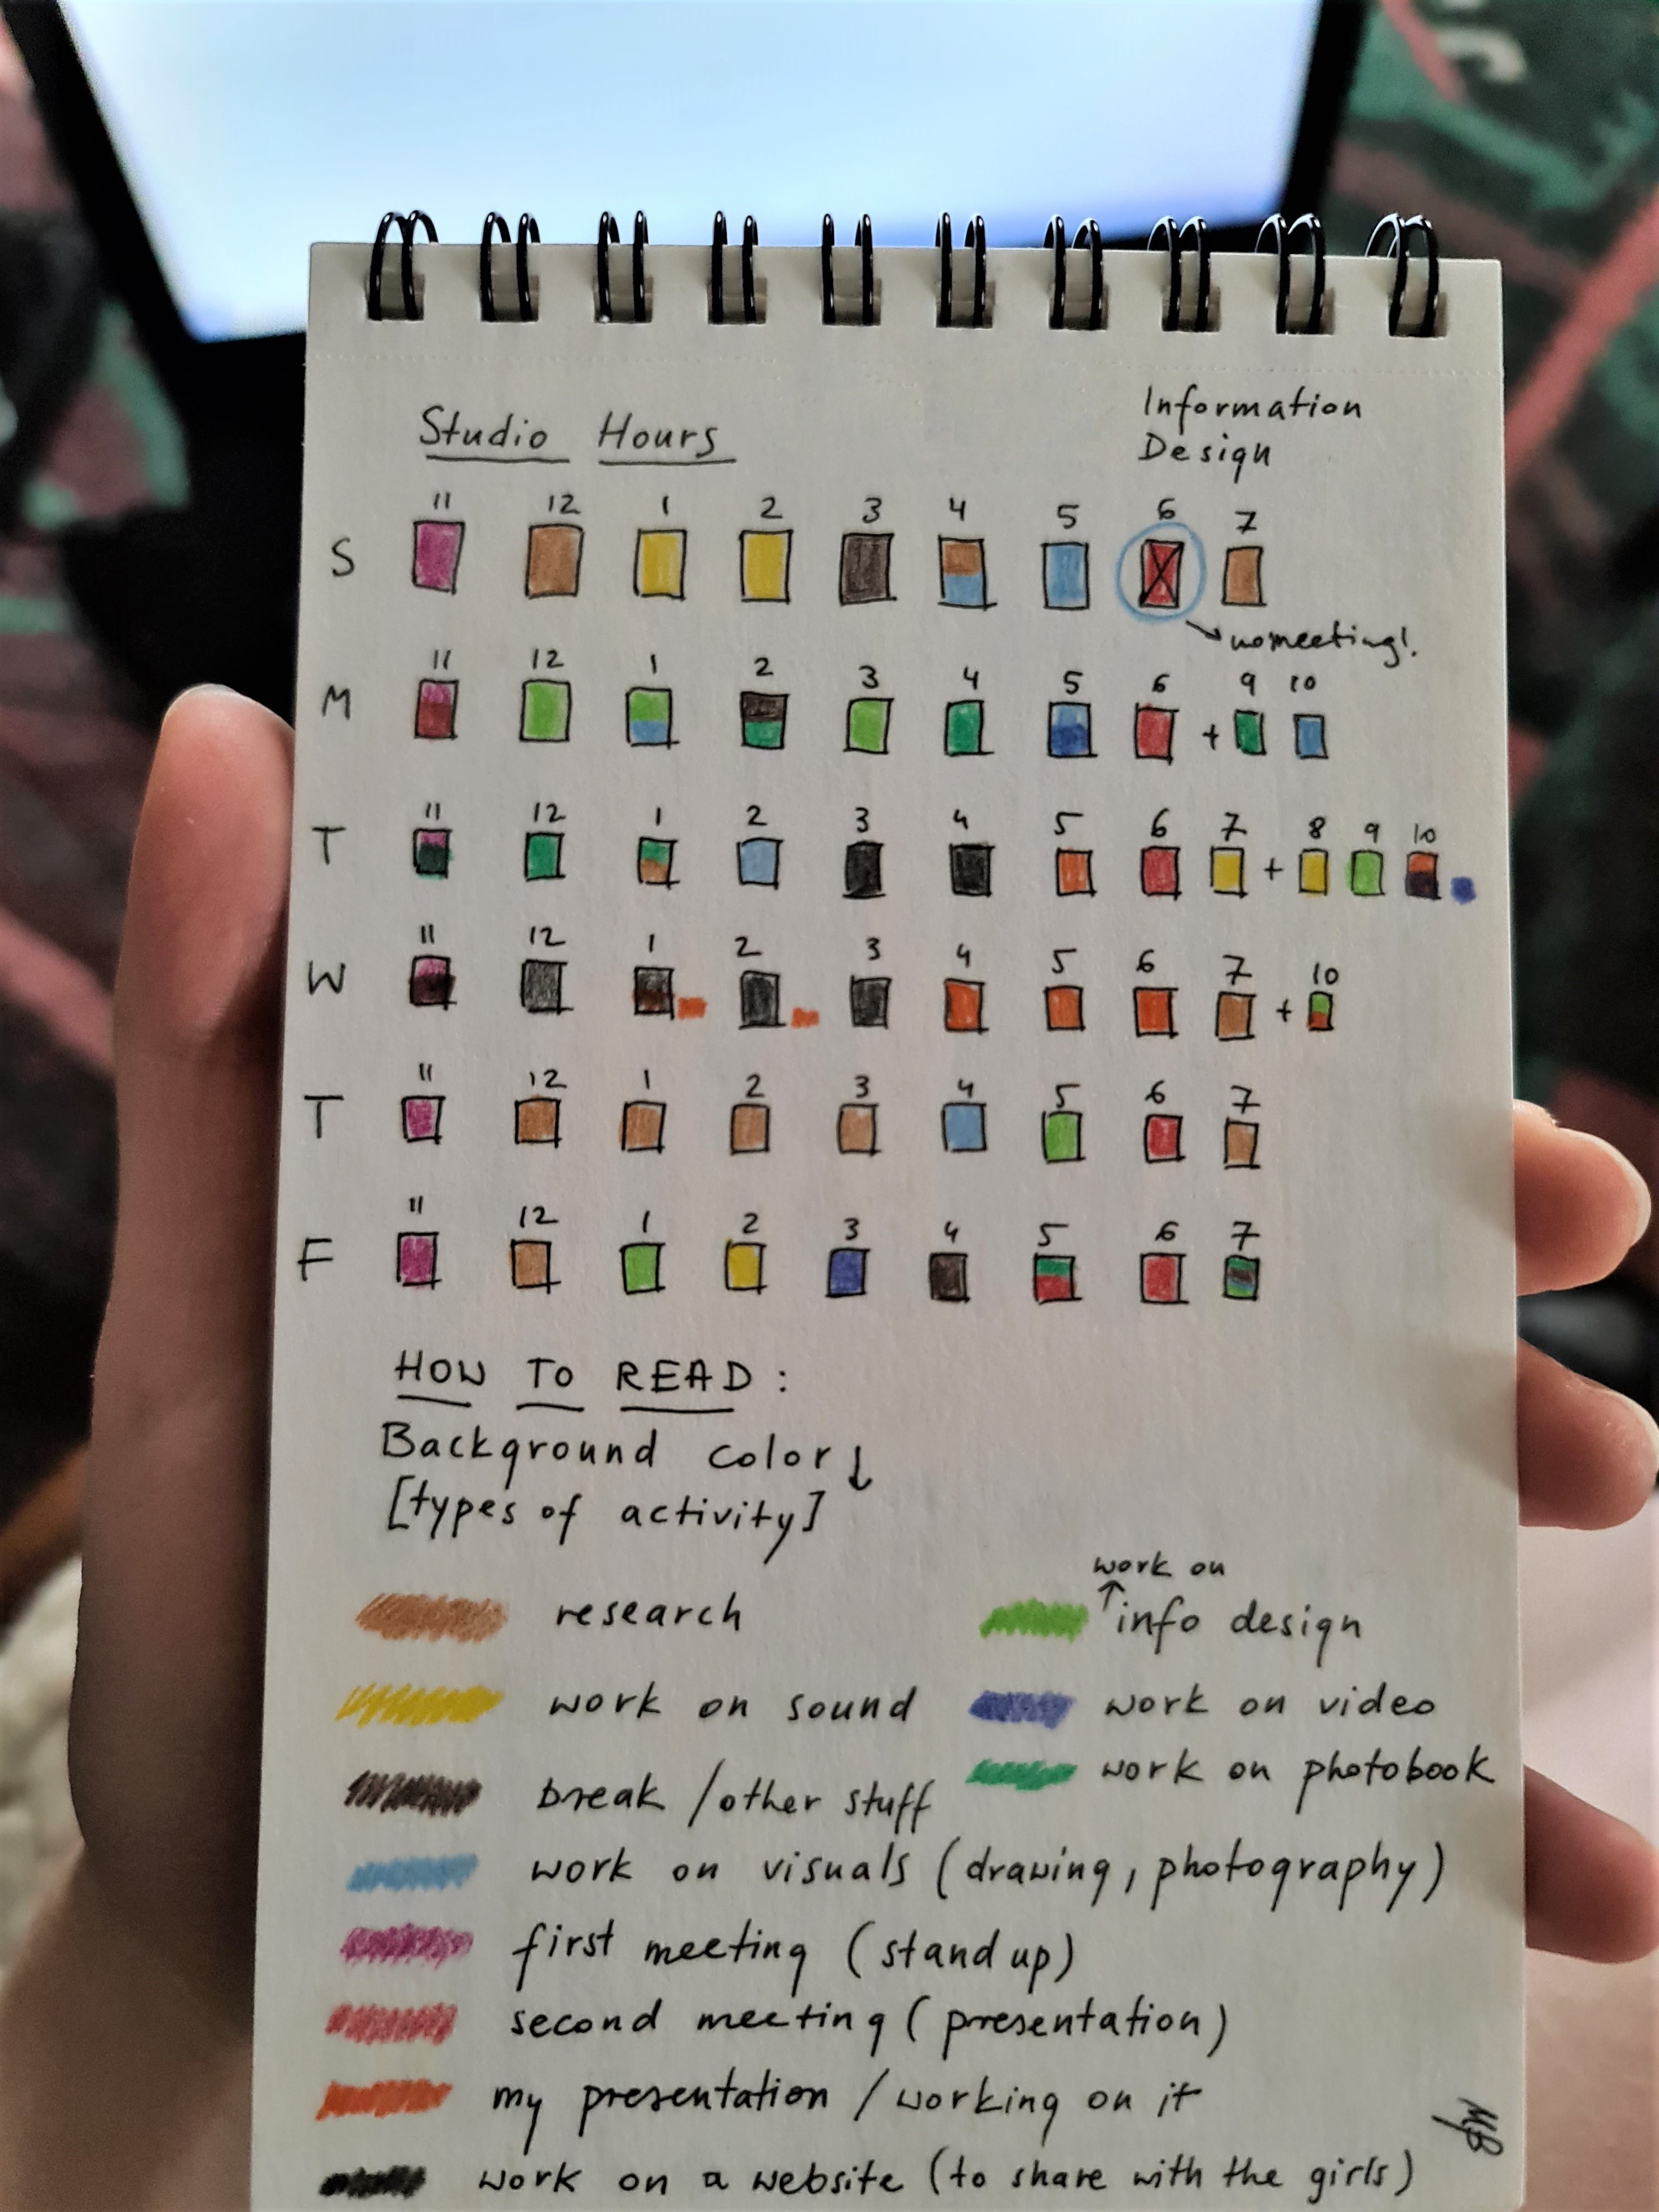 Studio Hours
Information
Design
S 11 12 1 2 3 4 5 6 7
no meeting!
M 11 12 1 2 3 4 5 6 + 9 10
T 11 12 1 2 3 4 5 6 7 + 8 9 10
W 11 12 1 2 3 4 5 6 7 + 10
T 11 12 1 2 3 4 5 6 7
F 11 12 1 2 3 4 5 6 7
HOW TO READ:
Background color ↓
[types of activity]
research
work on
↑ info design
work on sound
work on video
break / other stuff
work on photobook
work on visuals (drawing, photography)
first meeting (stand up)
second meeting (presentation)
my presentation / working on it
work on a website (to share with the girls)